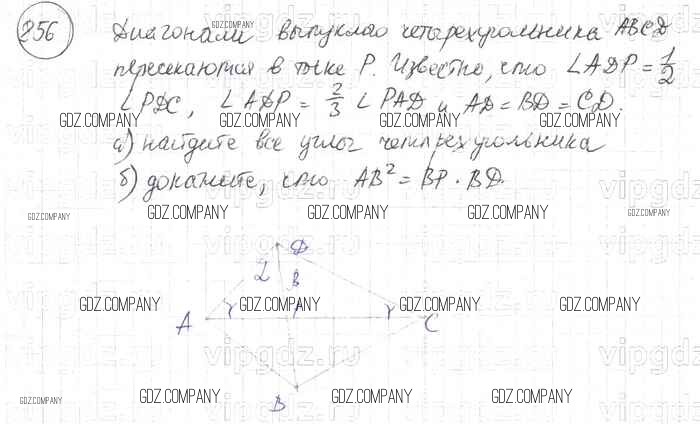 356
Диагонали выпуклого четырехугольника ABCD
пересекаются в точке P. Известно, что ∠ADP = 1/2
∠PDC, ∠ADP = 2/3 ∠PAD и AD = BD = CD.
GDZ.COMPANY GDZ.COMPANY GDZ.COMPANY GDZ.COMPANY
а) найдите все углы четырехугольника
б) докажите, что AB² = BP · BD.
GDZ.COMPANY GDZ.COMPANY GDZ.COMPANY GDZ.COMPANY GDZ.COMPANY
vipgdz.ru
D
GDZ.COMPANY GDZ.COMPANY GDZ.COMPANY GDZ.COMPANY
2 β
GDZ.COMPANY GDZ.COMPANY GDZ.COMPANY GDZ.COMPANY
A γ γ C
vipgdz.ru
GDZ.COMPANY GDZ.COMPANY GDZ.COMPANY GDZ.COMPANY
B